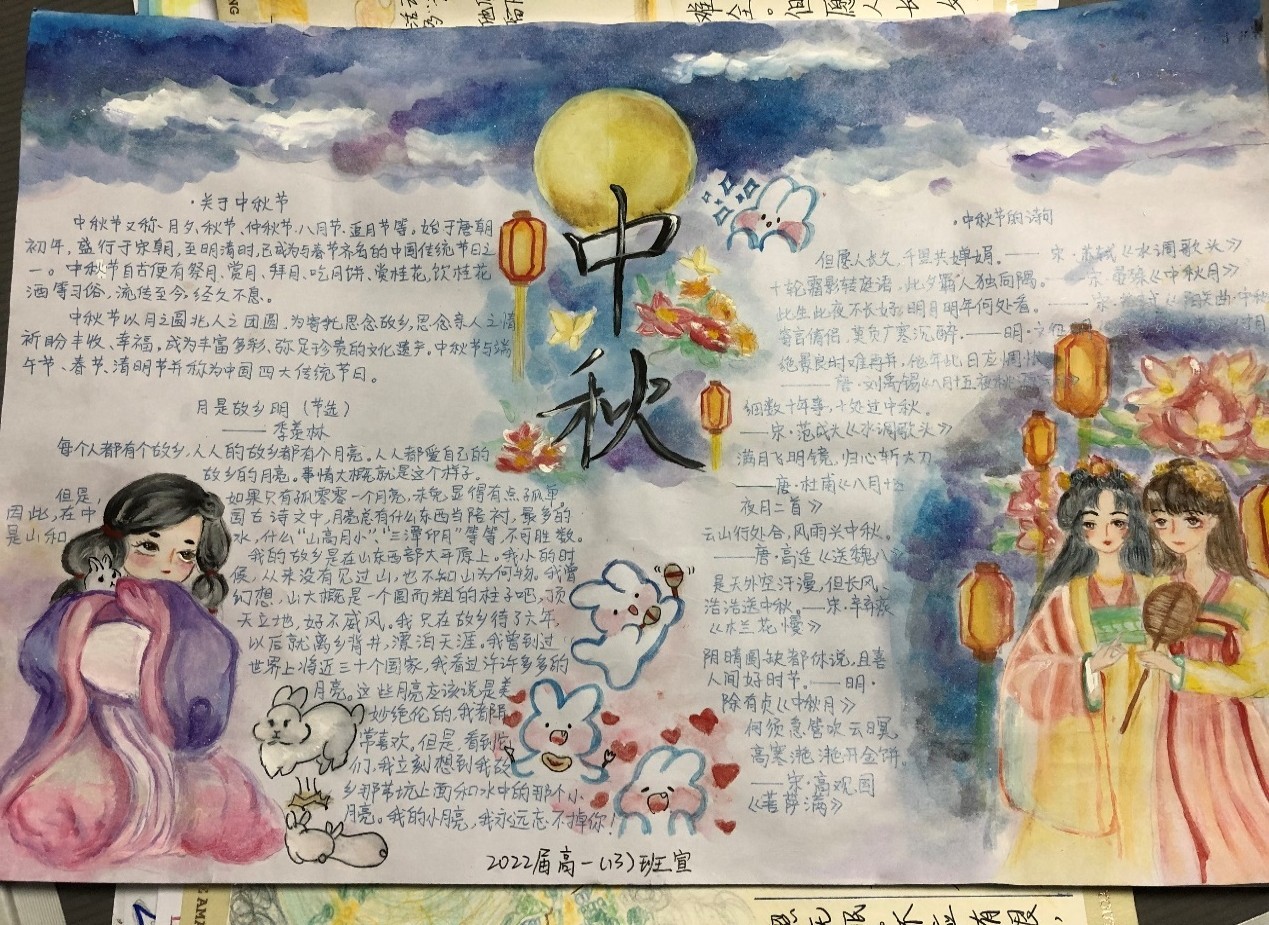 中秋
·关于中秋节
中秋节又称·月夕、秋节、仲秋节、八月节、追月节等。始于唐朝
初年,盛行于宋朝,至明清时,已成为与春节齐名的中国传统节日之
一。中秋节自古便有祭月、赏月、拜月、吃月饼、赏桂花,饮桂花
酒等习俗,流传至今,经久不息。
中秋节以月之圆兆人之团圆,为寄托思念故乡,思念亲人之情
祈盼丰收、幸福。成为丰富多彩、弥足珍贵的文化遗产。中秋节与端
午节、春节、清明节并称为中国四大传统节日。
月是故乡明(节选)
——季羡林
每个人都有个故乡,人人的故乡都有个月亮。人人都爱自己的
故乡的月亮。事情大概就是这个样子。
但是,如果只有孤零零一个月亮,未免显得有点孤单。
因此,在中国古诗文中,月亮总有什么东西当陪衬,最多的
是山和水,什么“山高月小”“三潭印月”等等,不可胜数。
我的故乡是在山东西部大平原上。我小的时
候,从来没有见过山,也不知山为何物。我曾
幻想,山大概是一个圆而粗的柱子吧,顶
天立地,好不威风。我只在故乡待了六年,
以后就离乡背井,漂泊天涯。我曾到过
世界上将近三十个国家,我看过许许多多的
月亮。这些月亮应该说是美
妙绝伦的,我都
常喜欢。但是,看到
们,我立刻想到我故
乡那苇坑上面和水中的那个小
月亮。我的小月亮,我永远忘不掉你!
·中秋节的诗句
但愿人长久,千里共婵娟。——宋·苏轼《水调歌头》
十轮霜影转庭梧,此夕羁人独向隅。——宋·晏殊《中秋月》
此生此夜不长好,明月明年何处看。——宋
莫负广寒沉醉。——明·
绝景良时难再并,他年此日应惆怅
——唐·刘禹锡《八月十五夜桃
细数十年事,十处过中秋。
——宋·范成大《水调歌头》
满月飞明镜,归心折大刀
——唐·杜甫《八月十五
夜月二首》
云山行处合,风雨兴中秋。
——唐·高适《送魏八》
是天外空汗漫,但长风、
浩浩送中秋。——宋·辛弃疾
《木兰花慢》
阴晴圆缺都休说,且喜
人间好时节。——明·
除有贞《中秋月》
何须急管吹云暝,
高寒滟滟开金饼。
——宋·高观国
《菩萨满》
2022届高一(13)班宣